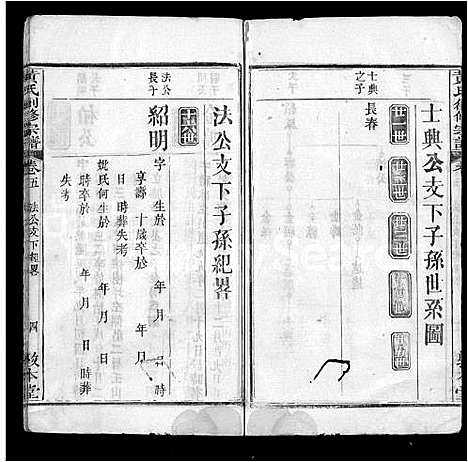 士典公支下子孫世系圖
廿一世
廿二世
廿三世
廿四世
廿五世
士典之子
長春
法公支下子孫紀畧
十六世
法公長子
紹明
字 生於 年 月 日 時
享壽 十歲卒於 年 月
日 時葬失考
妣氏何生於 年 月 日
時卒於 年 月 日 時葬
失考
黃氏創修宗譜
卷五
法公支下紀畧
四
敦本堂